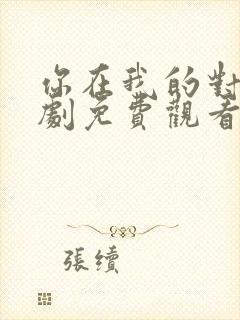 你在我的對
劇免費觀看
張續